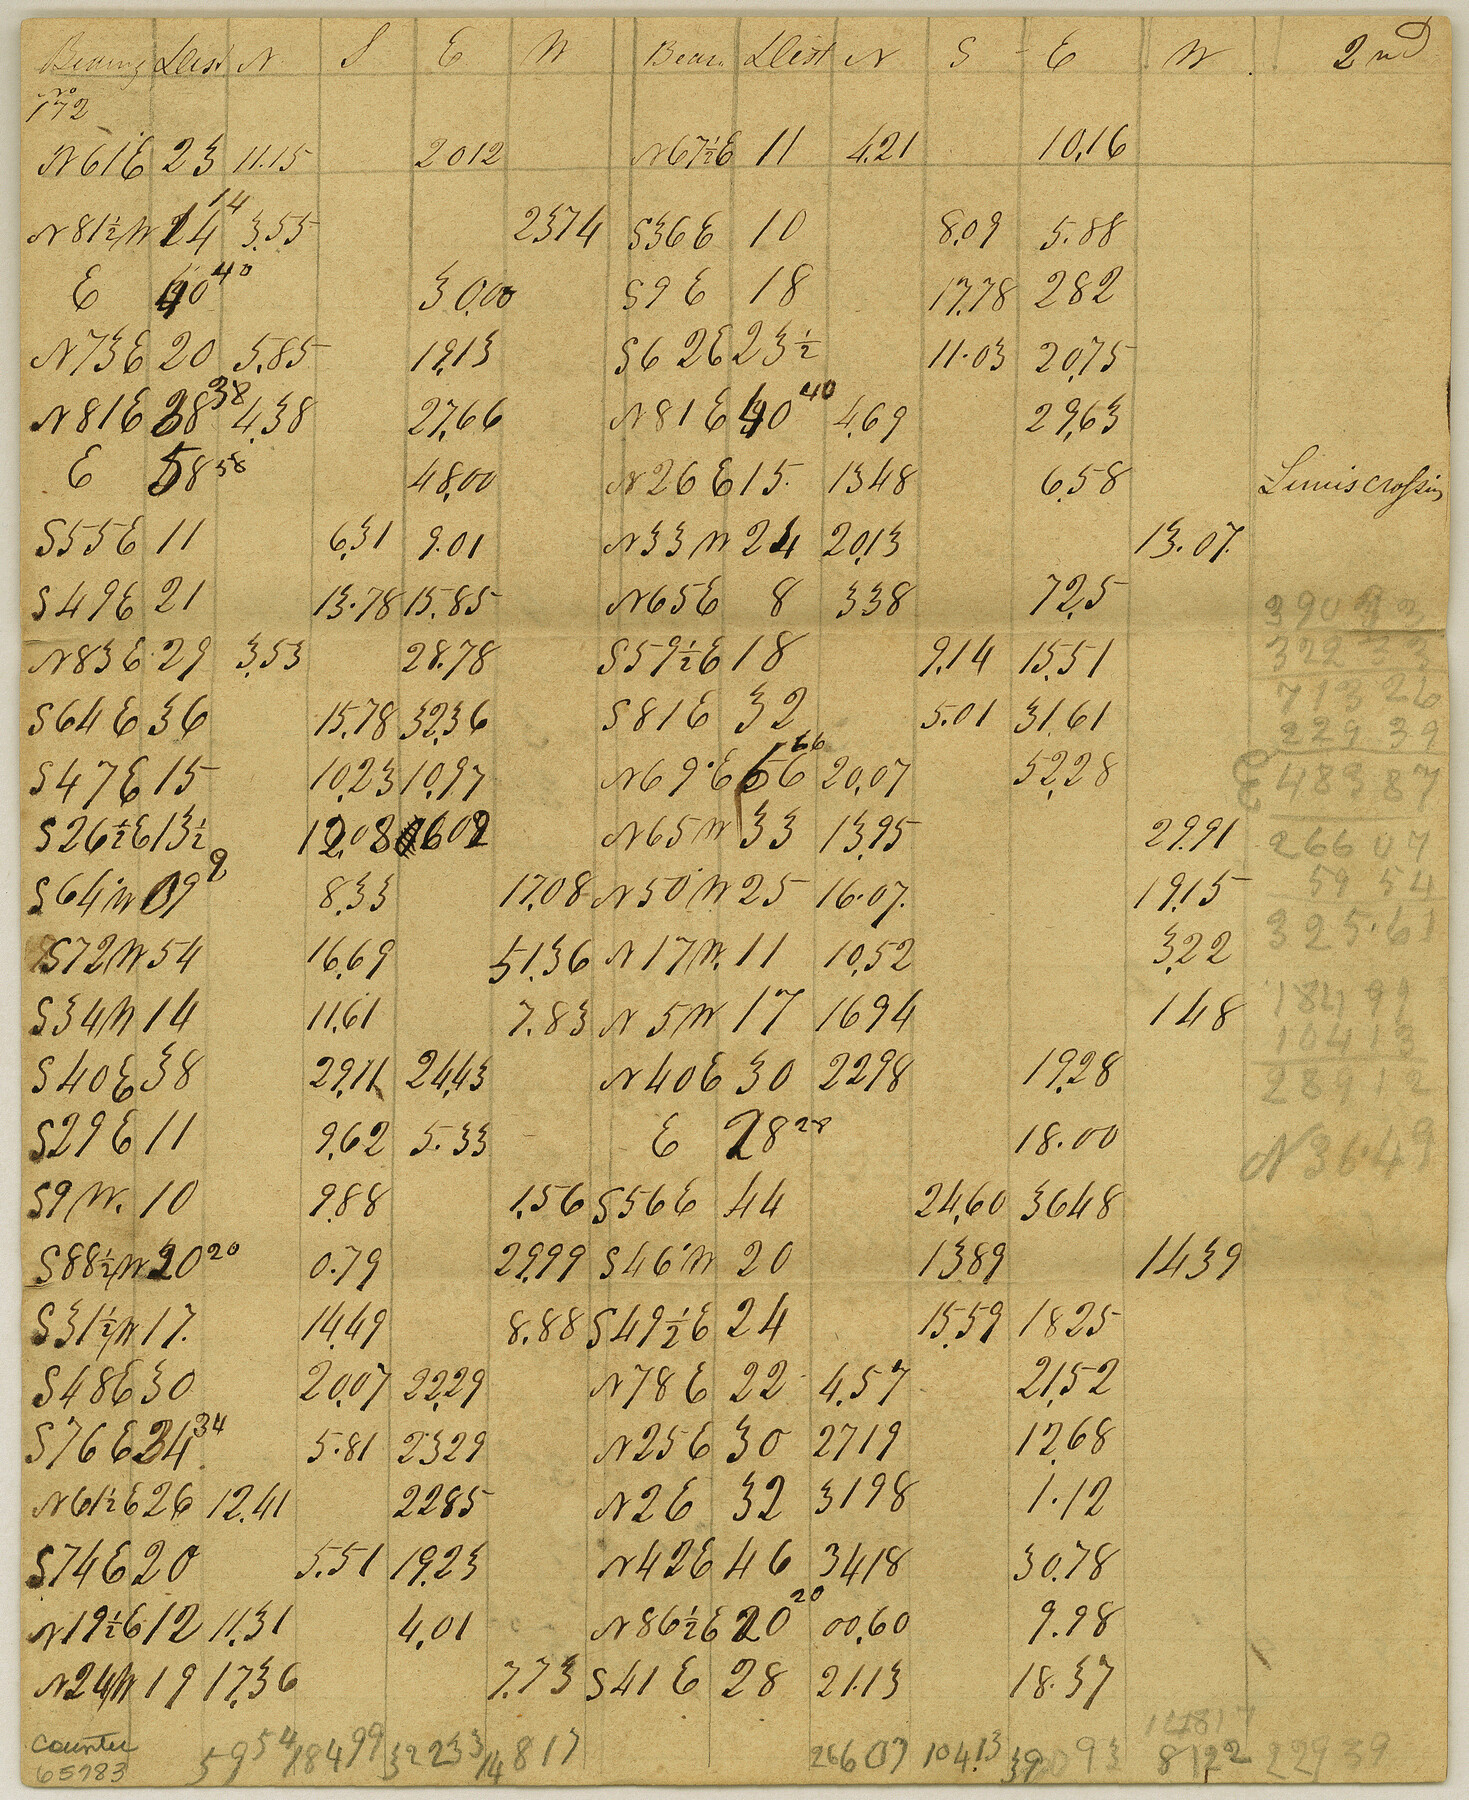 Bearing Dist N S E W Bear. Dist N S E W 2nd
No 172
N61E 23 11.15 2012 N67½E 11 4.21 10.16
N81½W 24 14 3.55 2374 S36E 10 8.09 5.88
E 40 40 30.00 S9E 18 17.78 282
N73E 20 5.85 19.13 S62E 23½ 11.03 20.75
N81E 38 38 4.38 27.66 N81E 40 40 4.69 29.63
E 58 58 48.00 N26E 15. 1348 6.58 Lewis crossing
S55E 11 6.31 9.01 N33W 24 20.13 13.07.
S49E 21 13.78 15.85 N65E 8 338 72.5
N83E 29 3.53 28.78 S59½E 18 9.14 15.51
S64E 36 15.78 32.36 S81E 32 5.01 31.61
S47E 15 10.23 10.97 N69°E 56 66 20.07 52.28
S26½E 13½ 12.08 602 N65W 33 13.95 29.91
S64W 09 9 8.33 17.08 N50°W 25 16.07. 19.15
S72W 54 16.69 51.36 N17W. 11 10.52 3.22
S34W 14 11.61 7.83 N5W 17 1694 148
S40E 38 29.11 24.43 N40E 30 2298 19.28
S29E 11 9.62 5.33 E 28 28 18.00
S9W. 10 9.88 1.56 S56E 44 24.60 3648
S88½W 20 20 0.79 29.99 S46°W 20 1389 1439
S31½W 17. 14.49 8.88 S49½E 24 15.59 1825
S48E 30 20.07 22.29 N78E 22 4.57 21.52
S76E 24 34 5.81 2329 N25E 30 2719 12.68
N61½E 26 12.41 2285 N2E 32 3198 1.12
S74E 20 5.51 19.23 N42E 46 3418 30.78
N19½E 12 11.31 4.01 N86½E 20 20 00.60 9.98
N24W 19 17.36 7.73 S41E 28 21.13 18.37
14817
5954 18499 32233 14817 26607 10413 39093 8122 22939
counter
65783
390 93
322 33
713 26
229 39
E 483 87
266 07
59 54
325.61
184 99
104 13
289 12
N 36.49